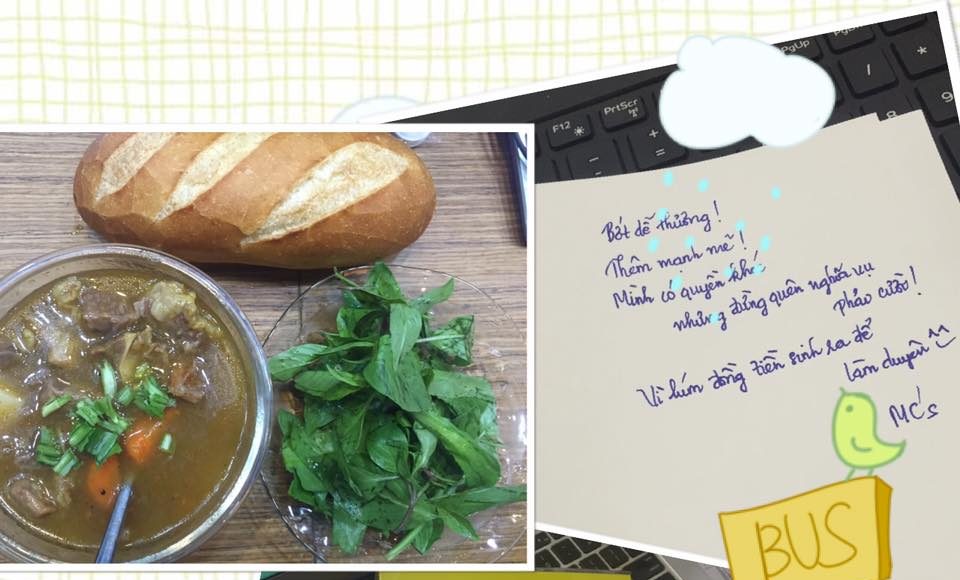 PgUp
PrtScr
F12
/
*
+
=
-
9
8
Bớt dễ thương!
Thêm mạnh mẽ!
Mình có quyền khó
nhưng đừng quên nghĩa vụ
phải cười!
Vì lúm đồng tiền sinh ra để
làm duyên
MC's
BUS